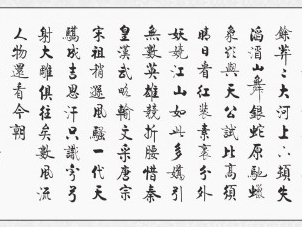 餘莽〻大河上下頓失
滔滔山舞銀蛇原馳蠟
象欲與天公試比高須
晴日看紅裝素裹分外
妖嬈江山如此多嬌引
無數英雄競折腰惜秦
皇漢武略輸文采唐宗
宋祖稍遜風騷一代天
驕成吉思汗只識彎弓
射大雕俱往矣數風流
人物還看今朝